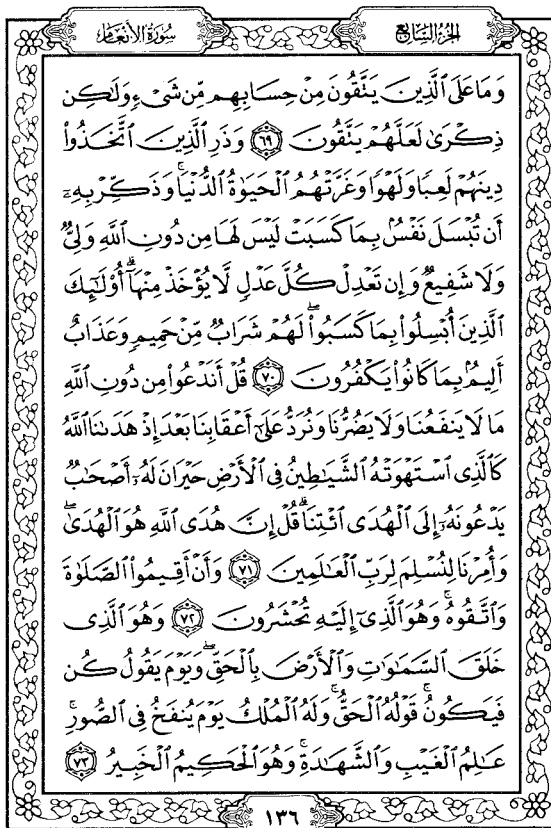 سُورَةُ الأَنْعَامِ
الجُزْءُ السَّابِعُ
وَمَا عَلَى ٱلَّذِينَ يَتَّقُونَ مِنْ حِسَابِهِم مِّن شَىْءٍ وَلَـٰكِن
ذِكْرَىٰ لَعَلَّهُمْ يَتَّقُونَ ٦٩ وَذَرِ ٱلَّذِينَ ٱتَّخَذُوا۟
دِينَهُمْ لَعِبًا وَلَهْوًا وَغَرَّتْهُمُ ٱلْحَيَوٰةُ ٱلدُّنْيَا ۚ وَذَكِّرْ بِهِۦٓ
أَن تُبْسَلَ نَفْسٌۢ بِمَا كَسَبَتْ لَيْسَ لَهَا مِن دُونِ ٱللَّهِ وَلِىٌّ
وَلَا شَفِيعٌ وَإِن تَعْدِلْ كُلَّ عَدْلٍ لَّا يُؤْخَذْ مِنْهَآ ۗ أُو۟لَـٰٓئِكَ
ٱلَّذِينَ أُبْسِلُوا۟ بِمَا كَسَبُوا۟ ۖ لَهُمْ شَرَابٌ مِّنْ حَمِيمٍ وَعَذَابٌ
أَلِيمٌۢ بِمَا كَانُوا۟ يَكْفُرُونَ ٧٠ قُلْ أَنَدْعُوا۟ مِن دُونِ ٱللَّهِ
مَا لَا يَنفَعُنَا وَلَا يَضُرُّنَا وَنُرَدُّ عَلَىٰٓ أَعْقَابِنَا بَعْدَ إِذْ هَدَىٰنَا ٱللَّهُ
كَٱلَّذِى ٱسْتَهْوَتْهُ ٱلشَّيَـٰطِينُ فِى ٱلْأَرْضِ حَيْرَانَ لَهُۥٓ أَصْحَـٰبٌ
يَدْعُونَهُۥٓ إِلَى ٱلْهُدَى ٱئْتِنَا ۗ قُلْ إِنَّ هُدَى ٱللَّهِ هُوَ ٱلْهُدَىٰ ۖ
وَأُمِرْنَا لِنُسْلِمَ لِرَبِّ ٱلْعَـٰلَمِينَ ٧١ وَأَنْ أَقِيمُوا۟ ٱلصَّلَوٰةَ
وَٱتَّقُوهُ ۚ وَهُوَ ٱلَّذِىٓ إِلَيْهِ تُحْشَرُونَ ٧٢ وَهُوَ ٱلَّذِى
خَلَقَ ٱلسَّمَـٰوَٰتِ وَٱلْأَرْضَ بِٱلْحَقِّ ۖ وَيَوْمَ يَقُولُ كُن
فَيَكُونُ ۚ قَوْلُهُ ٱلْحَقُّ ۚ وَلَهُ ٱلْمُلْكُ يَوْمَ يُنفَخُ فِى ٱلصُّورِ ۚ
عَـٰلِمُ ٱلْغَيْبِ وَٱلشَّهَـٰدَةِ ۚ وَهُوَ ٱلْحَكِيمُ ٱلْخَبِيرُ ٧٣
١٣٦